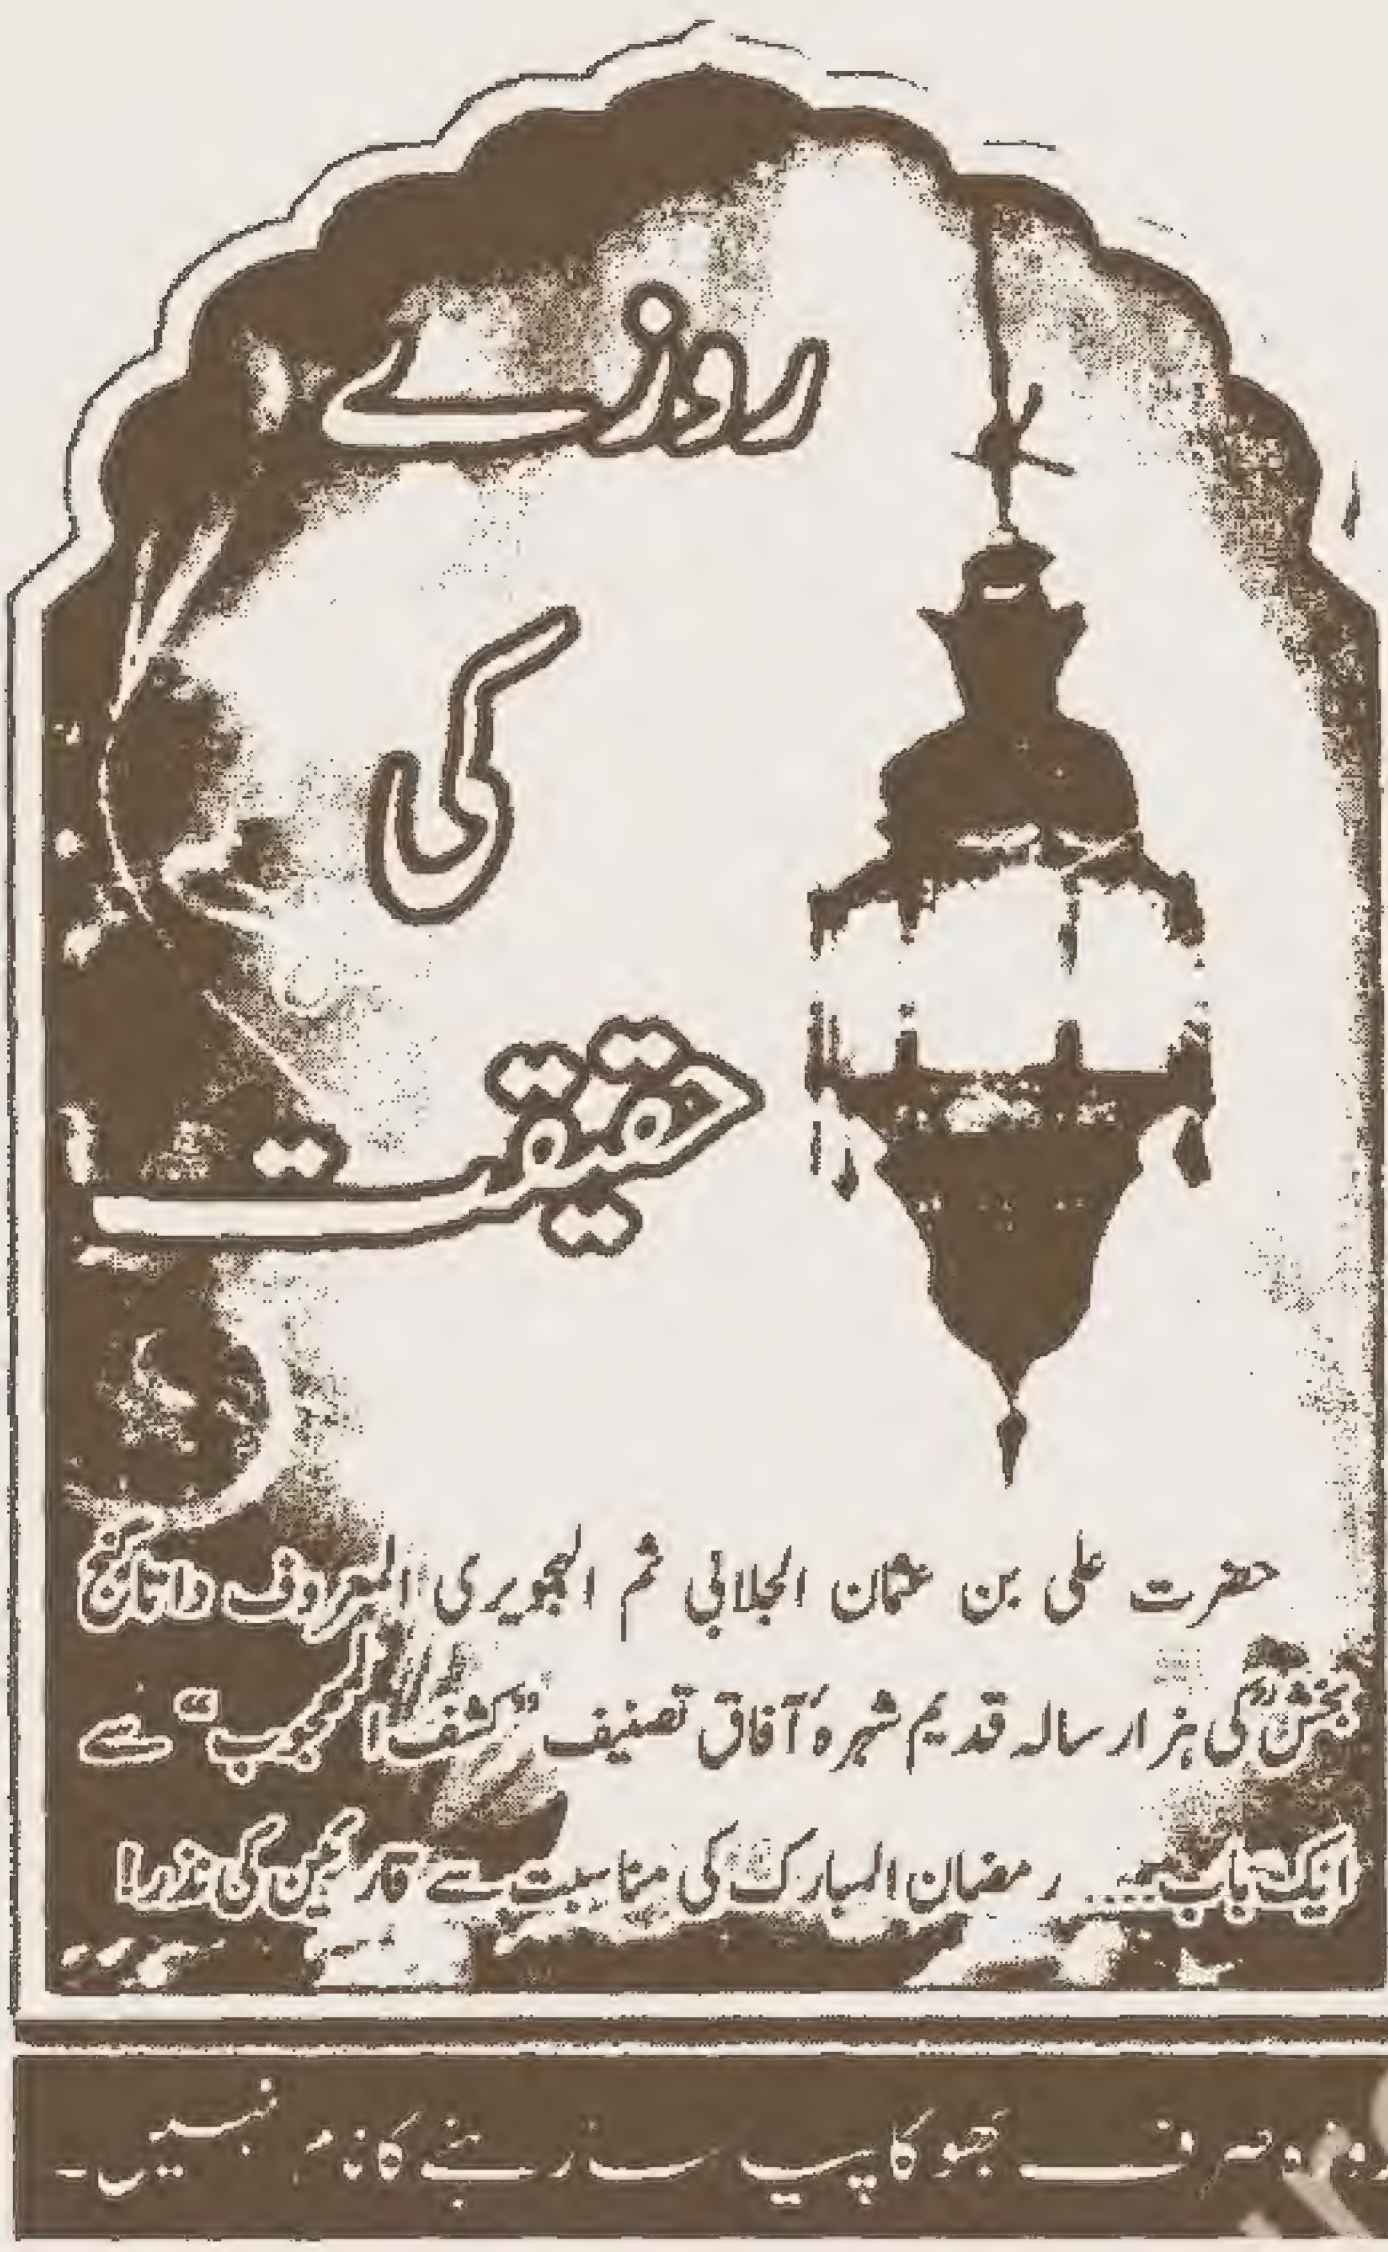 روزے
کی
حقیقت
حضرت علی بن عثمان الجلابی ثم الہجویری المعروف داتا گنج
بخشؒ کی ہزار سالہ قدیم شہرۂ آفاق تصنیف ”کشف المحجوب“ سے
ایک باب۔۔۔ رمضان المبارک کی مناسبت سے قارئین کی نذر!
روزہ صرف بھوکا پیاسا رہنے کا نام نہیں۔